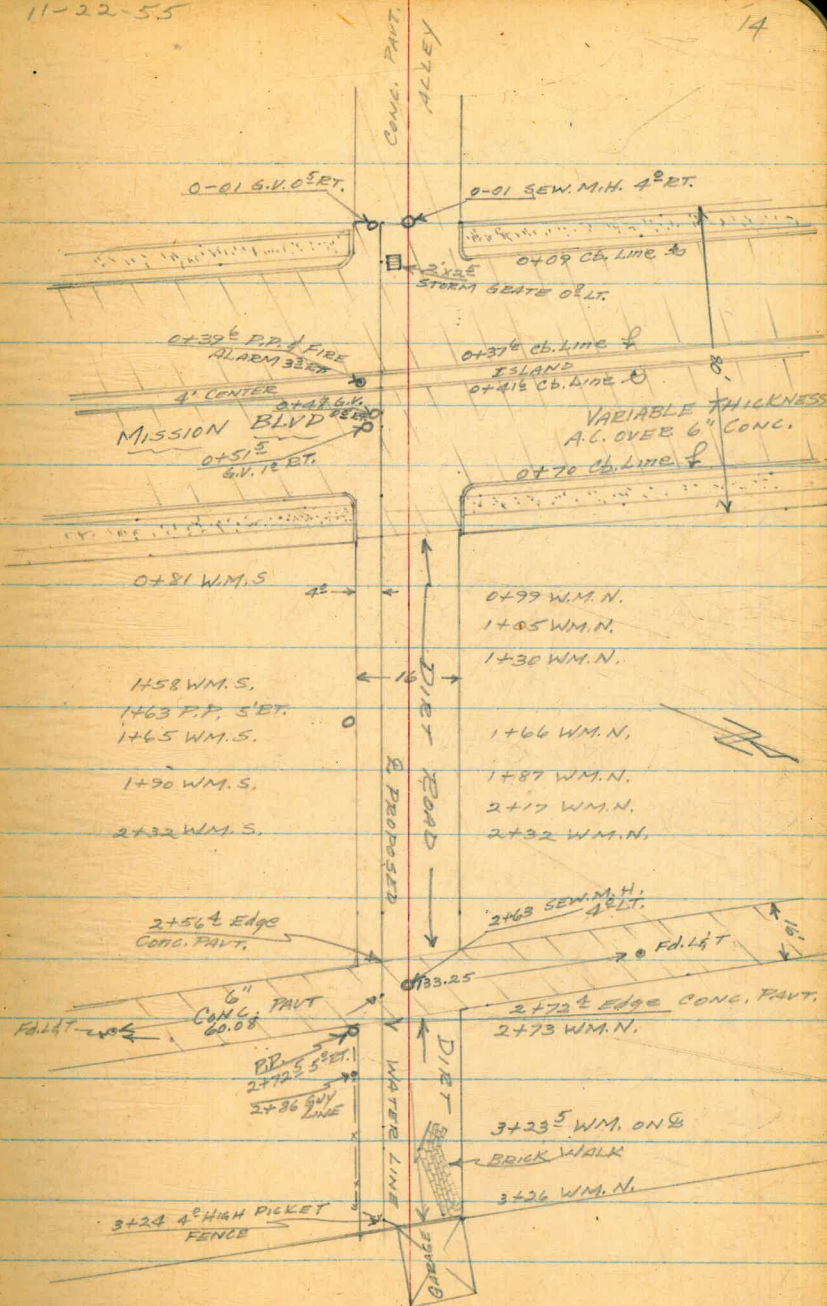 11-22-55
14
CONC. PAVT.
ALLEY
0-01 G.V. 0⁵ RT.
0-01 SEW. M.H. 4⁰ RT.
0+09 Cb. Line
2'X2⁵
STORM GRATE 0⁸ LT.
0+39⁶ P.P. & FIRE
ALARM 3³ RT
0+37⁶ Cb. Line
ISLAND
0+41⁶ Cb. Line
4' CENTER
0+49 G.V.
MISSION BLVD
0+51⁵
G.V. 1⁰ RT.
VARIABLE THICKNESS
A.C. OVER 6" CONC.
80'
0+70 Cb. Line
0+81 W.M. S
4⁰
0+99 W.M. N.
1+05 W.M. N.
1+30 W.M. N.
16
1+58 W.M. S.
1+63 P.P. 5' RT.
1+65 W.M. S.
1+66 W.M. N.
1+90 W.M. S.
1+87 W.M. N.
2+17 W.M. N.
2+32 W.M. S.
2+32 W.M. N.
DIRT ROAD
℄ PROPOSED
WATER LINE
2+56⁴ Edge
Conc. PAVT.
2+63 SEW. M.H.
4⁰ LT.
16'
Fd. L&T
133.25
6"
CONC. PAVT
60.08
Fd. L&T
2+72⁴ Edge CONC. PAVT.
2+73 W.M. N.
P.P.
2+72⁵ 5⁰ RT.
2+86 GUY
LINE
DIRT
3+23⁵ W.M. ON ℄
BRICK WALK
3+26 W.M. N.
3+24 4⁰ HIGH PICKET
FENCE
GARAGE